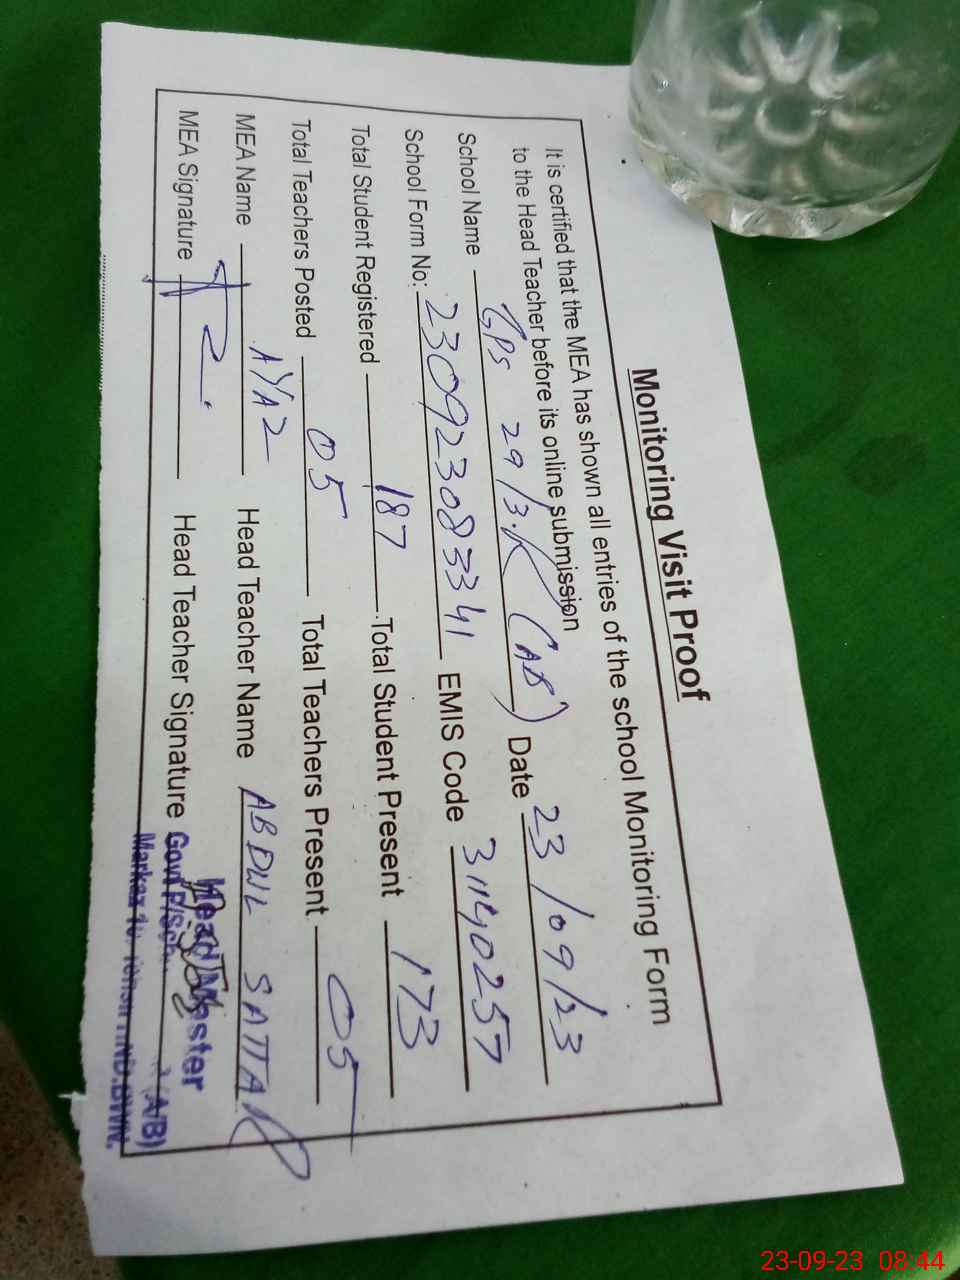 Monitoring Visit Proof
It is certified that the MEA has shown all entries of the school Monitoring Form
to the Head Teacher before its online submission
School Name GPS 29/3.R (AB) Date 23/09/23
School Form No: 23092308 3341 EMIS Code 31140257
Total Student Registered 187 Total Student Present 173
Total Teachers Posted 05 Total Teachers Present 05
MEA Name AYAZ Head Teacher Name ABDUL SATTAR
MEA Signature Head Teacher Signature
Head Master
Govt P/Sch (A/B)
Markaz HND.BWN.
23-09-23 08:44